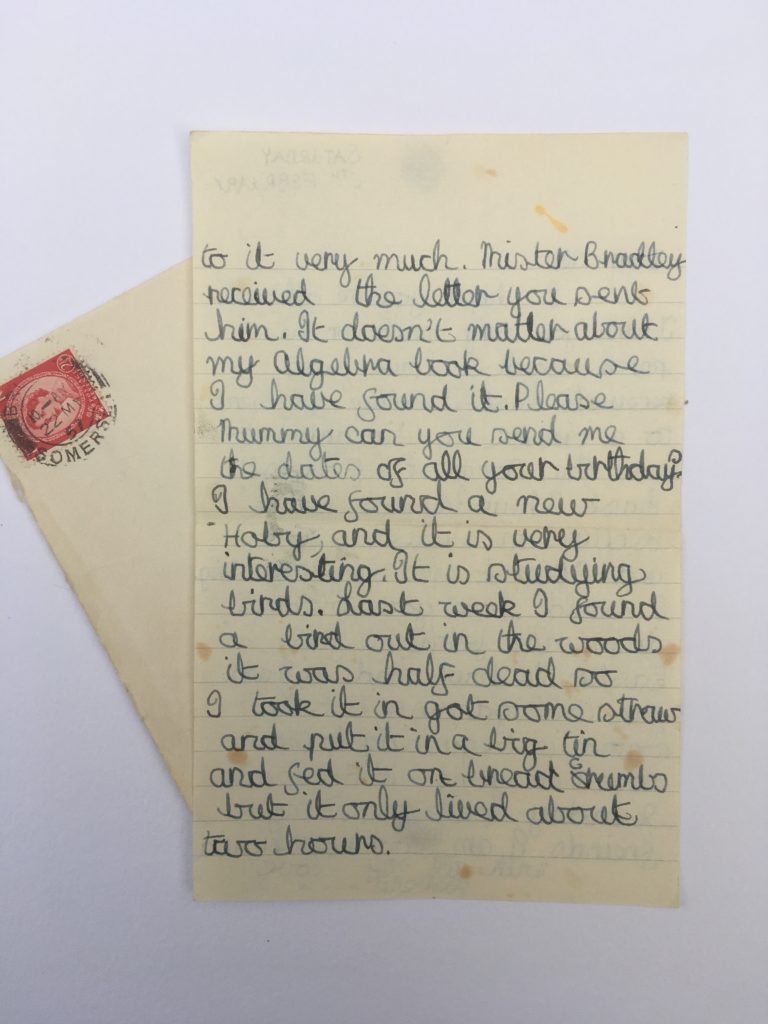 SATURDAY
FEBRUARY
to it very much. Mister Bradley
received the letter you sent
him. It doesn't matter about
my Algebra book because
I have found it. Please
Mummy can you send me
the dates of all your birthdays.
I have found a new
Hoby, and it is very
interesting. It is studying
birds. Last week I found
a bird out in the woods
it was half dead so
I took it in got some straw
and put it in a big tin
and fed it on bread crumbs
but it only lived about
two hours.
22 MY
57
SOMERS